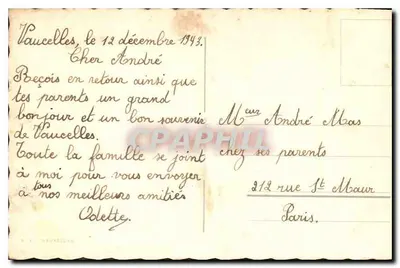 Vaucelles, le 12 décembre 1943.
Cher André
Reçois en retour ainsi que
tes parents un grand
bonjour et un bon souvenir
de Vaucelles.
Toute la famille se joint
à moi pour vous envoyer
à tous nos meilleurs amitiés
Odette.
Meur André Mas
chez ses parents
212 rue St Maur
Paris.
CPAPHIL